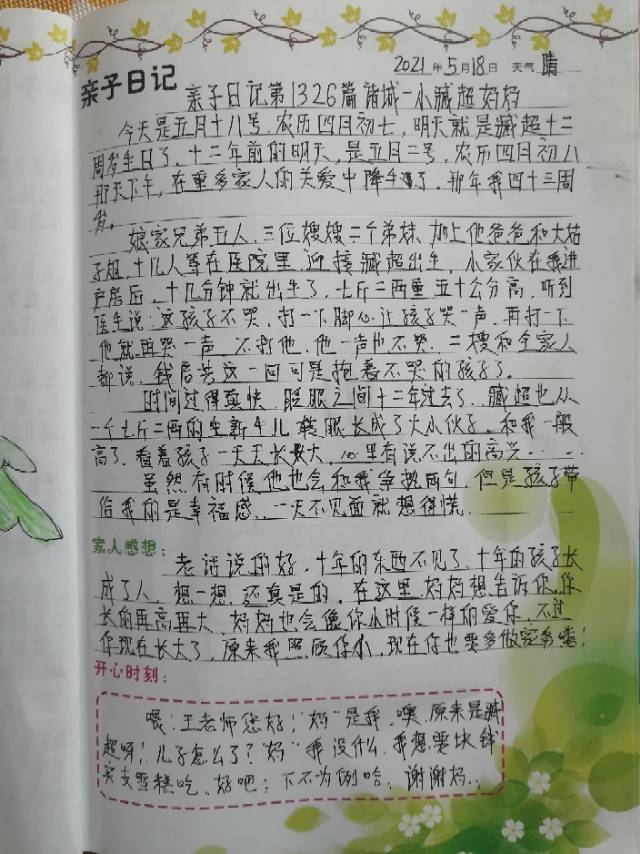 亲子日记
2021年5月18日 天气 晴
亲子日记第1326篇诸城一小臧超妈妈
今天是五月十八号,农历四月初七,明天就是臧超十二
周岁生日了,十二年前的明天,是五月二号,农历四月初八
那天下午,在重多家人的关爱中降生了。那年我四十三周
岁。
娘家兄弟五人,三位嫂嫂二个弟妹,加上他爸爸和大姑
子姐,十几人等在医院里,迎接臧超出生,小家伙在我进
产房后,十几分钟就出生了,七斤二两重五十公分高,听到
医生说:这孩子不哭,打一下脚心,让孩子哭一声,再打一下
他就再哭一声,不打他,他一声也不哭,二嫂和全家人
都说,钱后芸这一回可是抱着不哭的孩子了。
时间过得真快,眨眼之间十二年过去了,臧超也从
一个七斤二两的生新儿转眼长成了大小伙子,和我一般
高了,看着孩子一天天长大,心里有说不出的高兴……
虽然有时候他也会和我争执两句,但是孩子带
给我的是幸福感,一天不见面就想得慌。
家人感想:
老话说的好,十年的东西不见了,十年的孩子长
成了人,想一想,还真是的,在这里,妈妈想告诉你,你
长的再高再大,妈妈也会像你小时候一样的爱你,不过
你现在长大了,原来我照顾你小,现在你也要多做家务喽!
开心时刻:
喂!王老师您好!"妈"是我,噢,原来是臧
超呀!儿子怎么了?"妈"我没什么,我想要块钱
买支雪糕吃,好吧!下不为例哈,谢谢妈.!